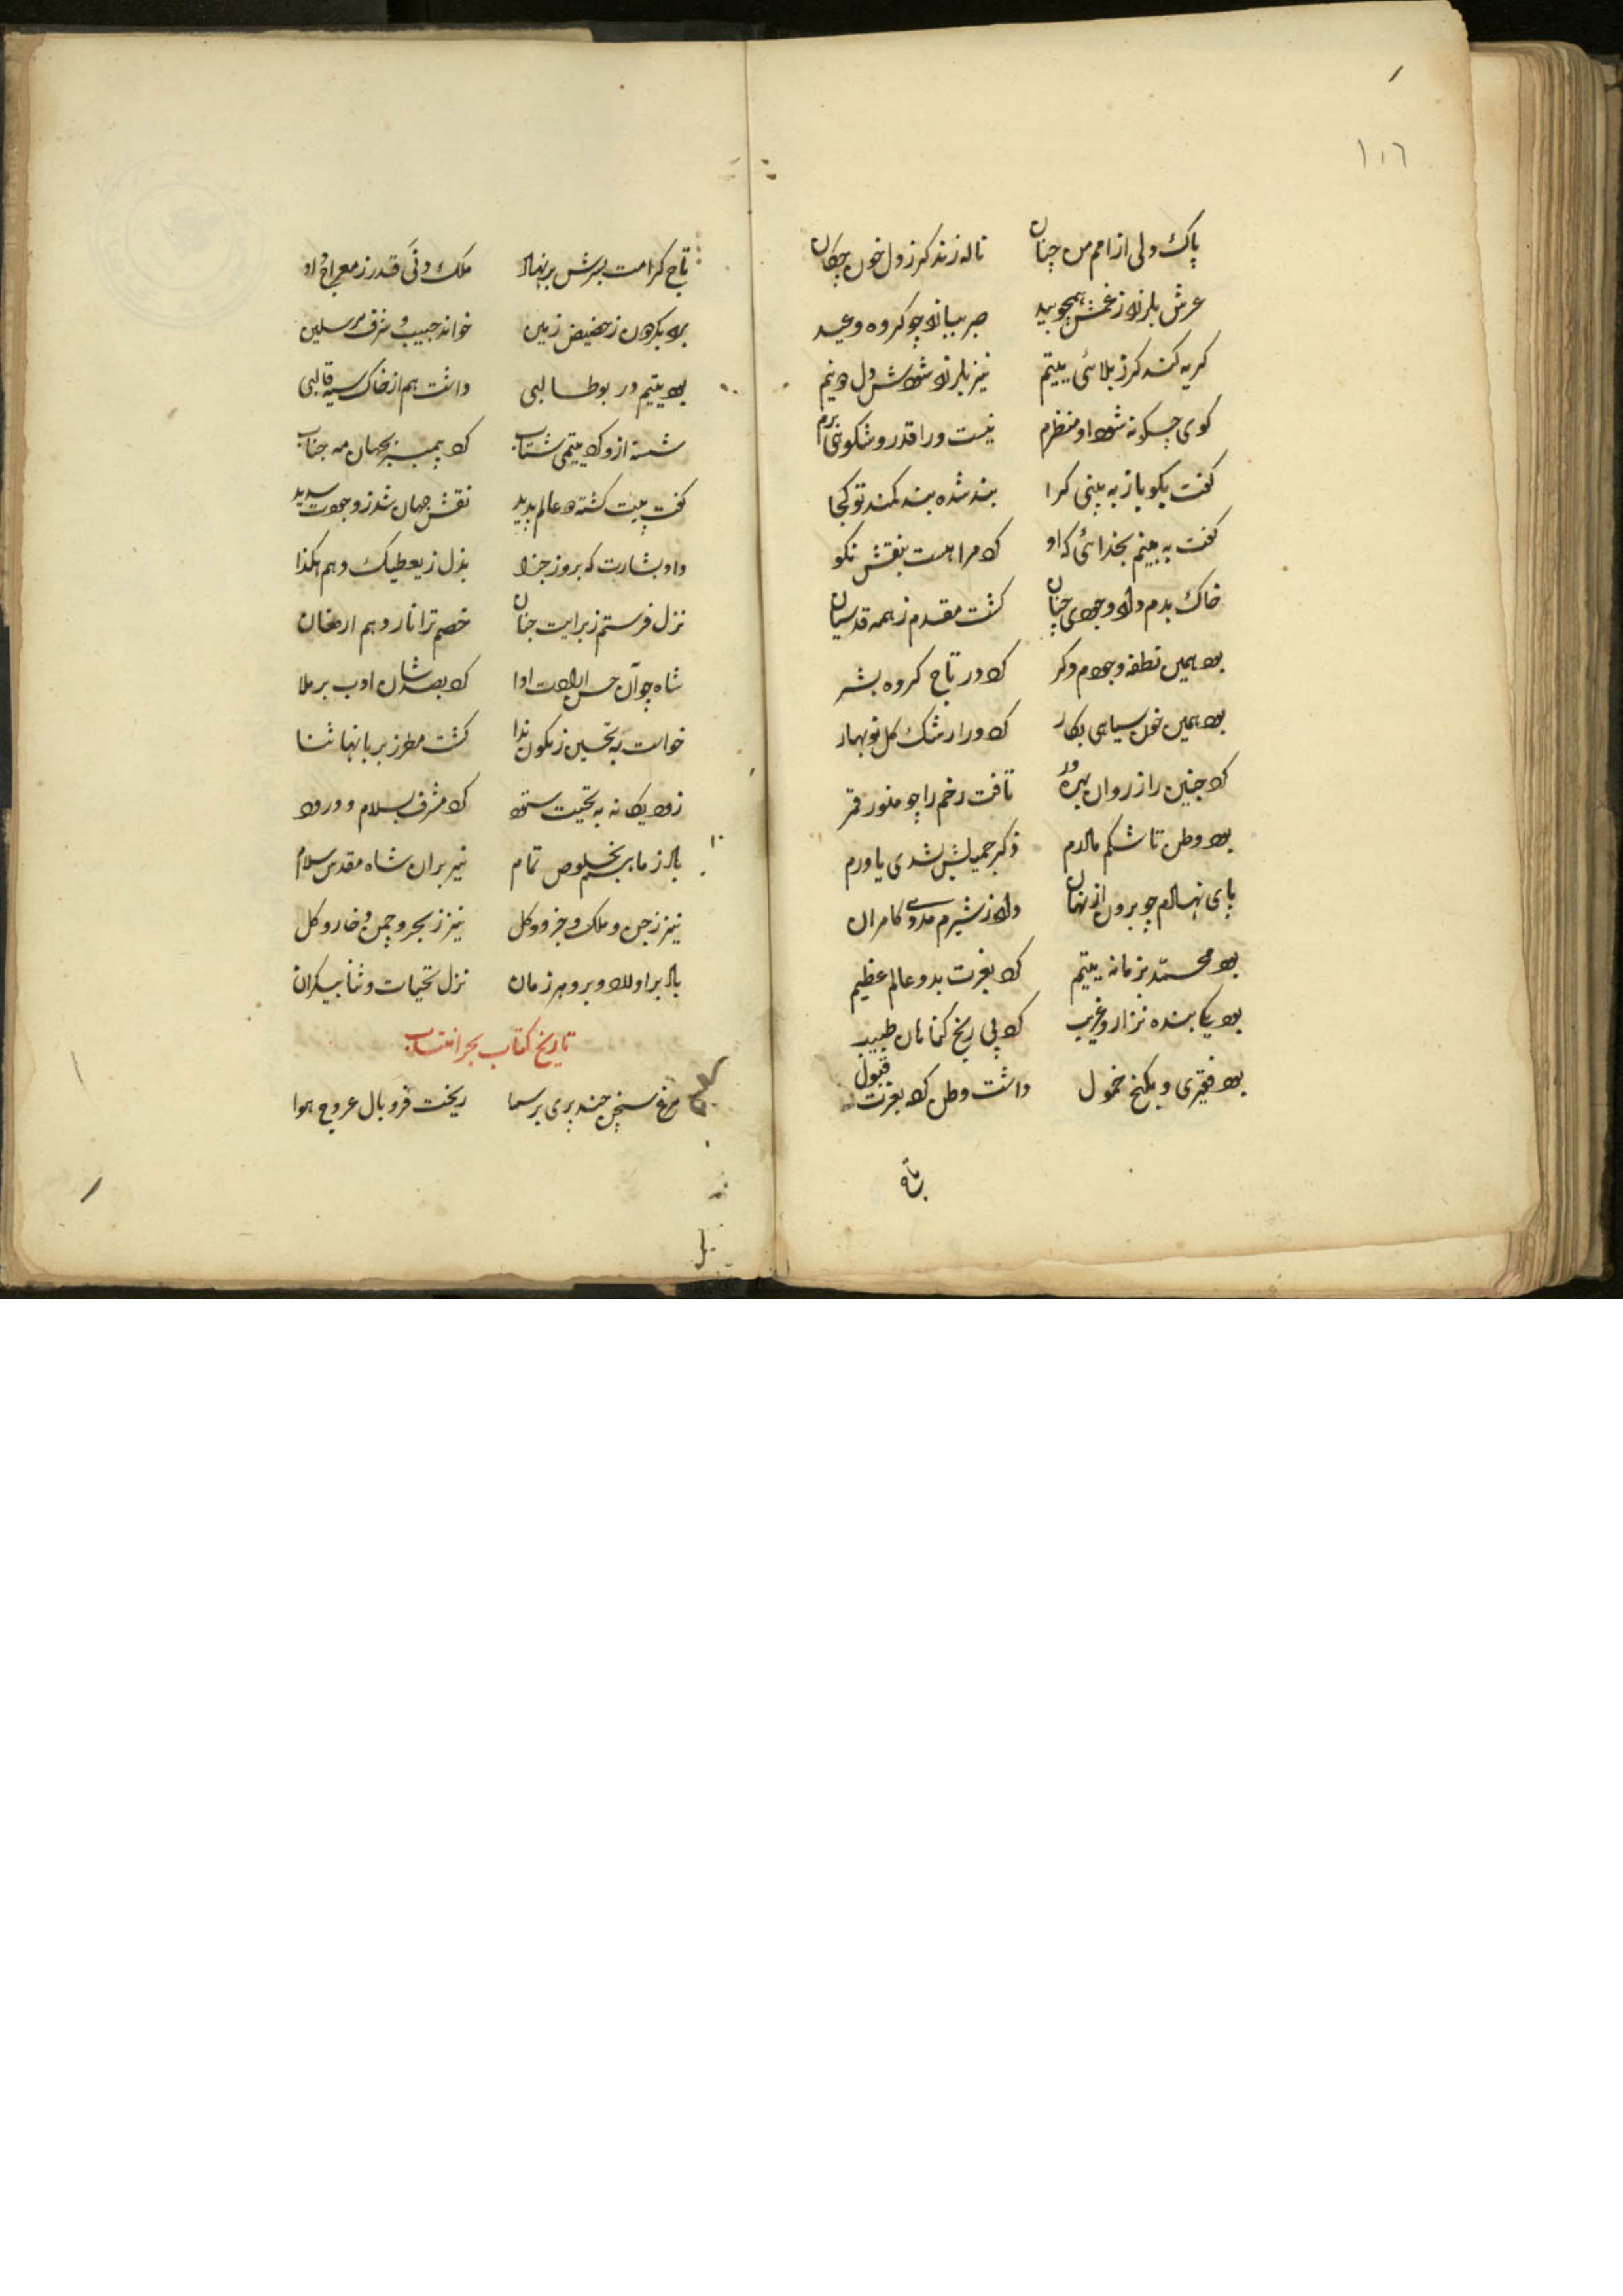 ١٠٦
پاک دلی از امم من چنان ناله زند کز دل خون چکان
عرش بلرزد ز غمش همچو بید صبر بباند چو کروه وعید
کریه کند کر ز بلائی یتیم نیز بلرزد شودش دل دو نیم
کوی چسکونه شود او منظرم نیست ورا قدر و شکوهی برم
کفت بکو باز به بینی کرا بند شده بند کمند تو کجا
کفت به بینم بخدائی که او کرد مرا هست بنقش نکو
خاک بدم داد وجودی چنان کشت مقدم ز همه قدسیان
بود همین نطفه وجودم دکر کرد در تاج کروه بشر
بود همین خون سیاهی بکار کرد ورا رشک کل نوبهار
کرد جنین را ز روان بهره ور تافت رخم را چو منور قمر
بود وطن تا شکم مادرم ذکر جمیلش شدی یاورم
پای نهادم چو برون از نهان داد ز شیرم مددی کامران
بود محمد بزمانه یتیم کرد بعزت بدو عالم عظیم
بود یکی بنده نزار و غریب کرد پی رنج کناهان طبیب
بود فقیری و بکنج خمول داشت وطن کرد بعزت قبول
تاج
تاج کرامت بسرش بر نهاد ملک دنی قدر ز معراج داد
برد بکردون ز حضیض زمین خواند حبیب و شرف مرسلین
بود یتیم در بوطالبی داشت هم از خاک سیه قالبی
شسته ازو کرد یتیمی شتاب کرد پیمبر بجهان مه جناب
کفت پیت کشته دو عالم پدید نقش جهان شد ز وجودت سدید
داد بشارت که بروز جزا بذل ز یعطیک و هم هکذا
نزل فرستم ز برایت جنان خصم ترا نار دهم ارمغان
شاه چو آن حسن ارادت ادا کرد بصد شان ادب بر ملا
خواست به تحسین ز نکون ندا کشت مطرز بربانها ثنا
زود یکانه به تحیت ستود کرد مشرف بسلام و درود
باد ز ما بر بخلوص تمام نیز بران شاه مقدس سلام
نیز ز جن و ملک و جزو و کل نیز ز بحر و چمن و خار و کل
باد بر اولاد و برو هر زمان نزل تحیات و ثنا بیکران
تاریخ کتاب بحر انتساب
مرغ سخن چند پری بر سما ریخت فرو بال عروج هوا